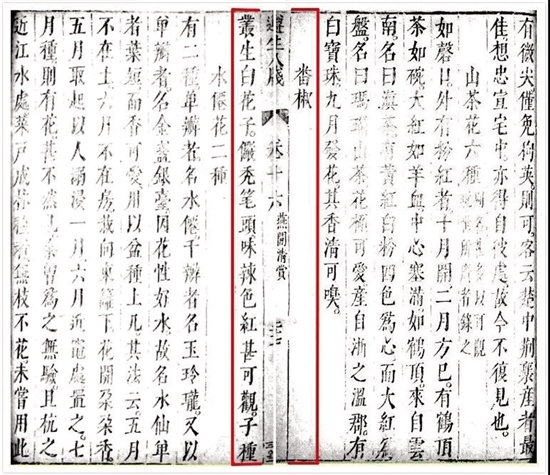 有微尖僅免拘英則可客云中荆襄產者最
佳想忠宣宅中亦得自彼處故今不復見也
山茶花六種
如磬口外有粉紅者十月開二月方巳有鶴頂
茶如碗大紅如羊血中心塞滿如鶴頂來自雲
南名曰滇茶有黃紅白粉四色為心而大紅為
盤名曰瑪瑙山茶花極可愛產自浙之溫郡有
白寶珠九月發花其香清可嗅
番椒
遵生八牋 卷十六 燕閒清賞
叢生白花子儼禿笔頭味辣色紅甚可觀子種
水僊花二種
有二種单瓣者名水僊千瓣者名玉玲瓏又以
单瓣者名金盞銀臺因花性好水故名水仙单
者葉短而香可愛用以盆種上几其法云五月
不在土六月不在房栽向東籬下花開朶朶香
五月取起以人溺浸一月六月近竈處置之七
月種則有花甚不然見曾為之無驗且杭之
近江水處菜戶成種者無枝不花未嘗用此